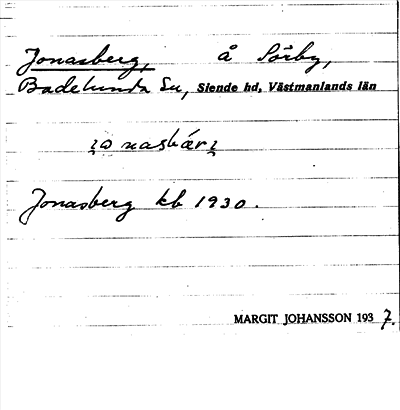 Jonasberg, å Sörby,
Badelunda Sn, Siende hd, Västmanlands län
Jonasberg kb 1930.
MARGIT JOHANSSON 1937.